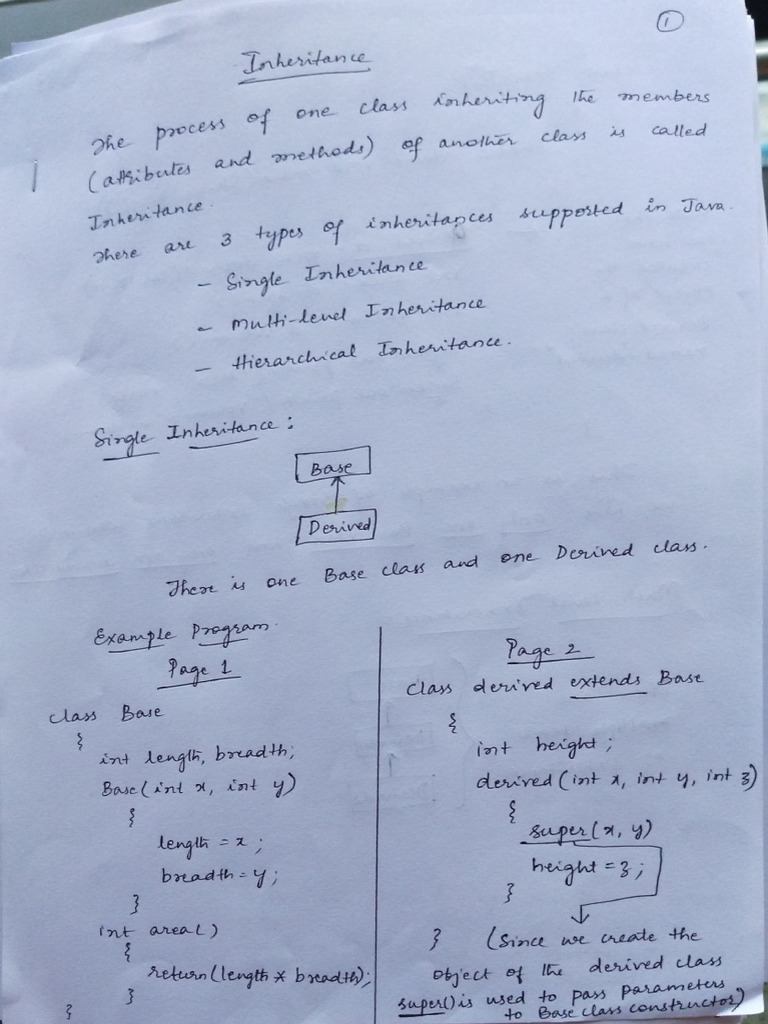 1
Inheritance
The process of one class inheriting the members
(attributes and methods) of another class is called
Inheritance.
There are 3 types of inheritances supported in Java.
- Single Inheritance
- Multi-level Inheritance
- Hierarchical Inheritance.
Single Inheritance :
Base
Derived
There is one Base class and one Derived class.
Example Program
Page 1
class Base
{
int length, breadth;
Base(int x, int y)
{
length = x;
breadth = y;
}
int area()
{
return(length * breadth);
}
}
Page 2
class derived extends Base
{
int height;
derived(int x, int y, int z)
{
super(x, y)
height = z;
}
} (Since we create the
object of the derived class
super() is used to pass parameters
to Base class constructor)